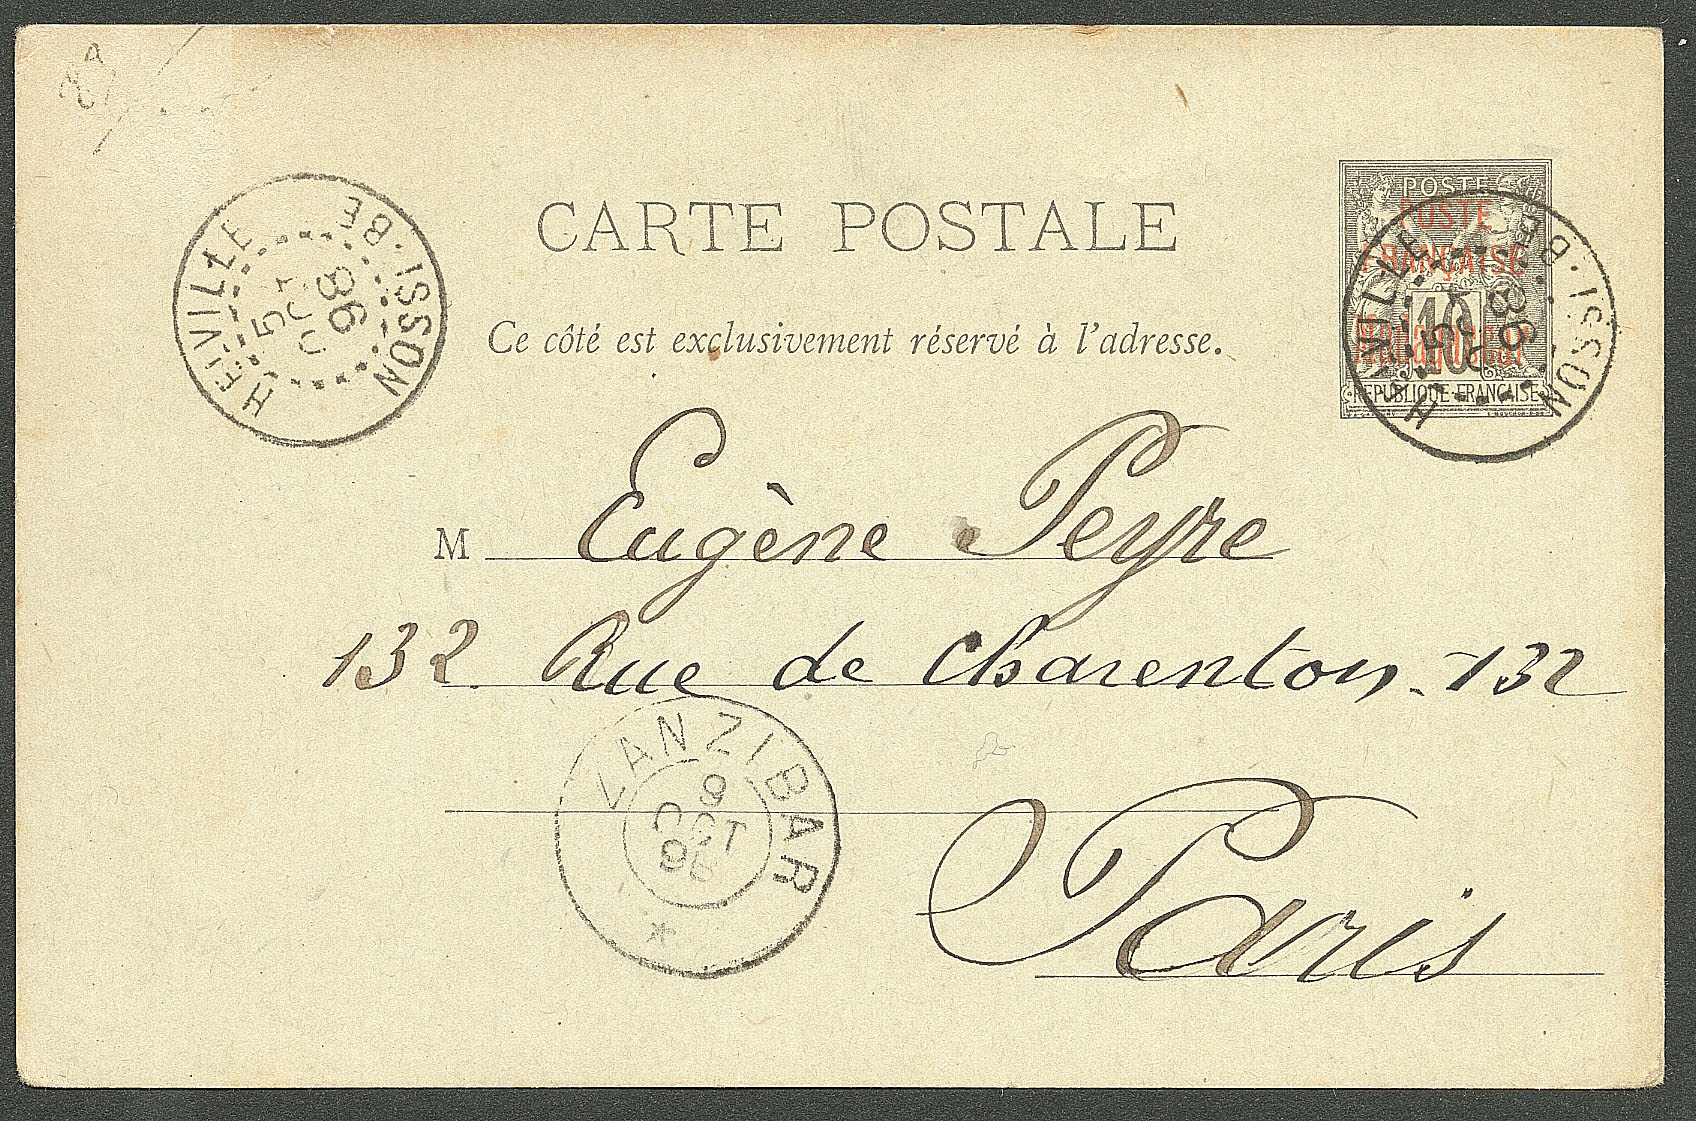 CARTE POSTALE
Ce côté est exclusivement réservé à l'adresse.
POSTE
POSTE
FRANÇAISE
Madagascar
10
REPUBLIQUE FRANÇAISE
NOSSI·BE HELVILLE
5 OCT 98
NOSSI·BE HELVILLE
5 OCT 98
M Eugène Peyre
132 Rue de Charenton - 132
Paris
ZANZIBAR
9
OCT
98